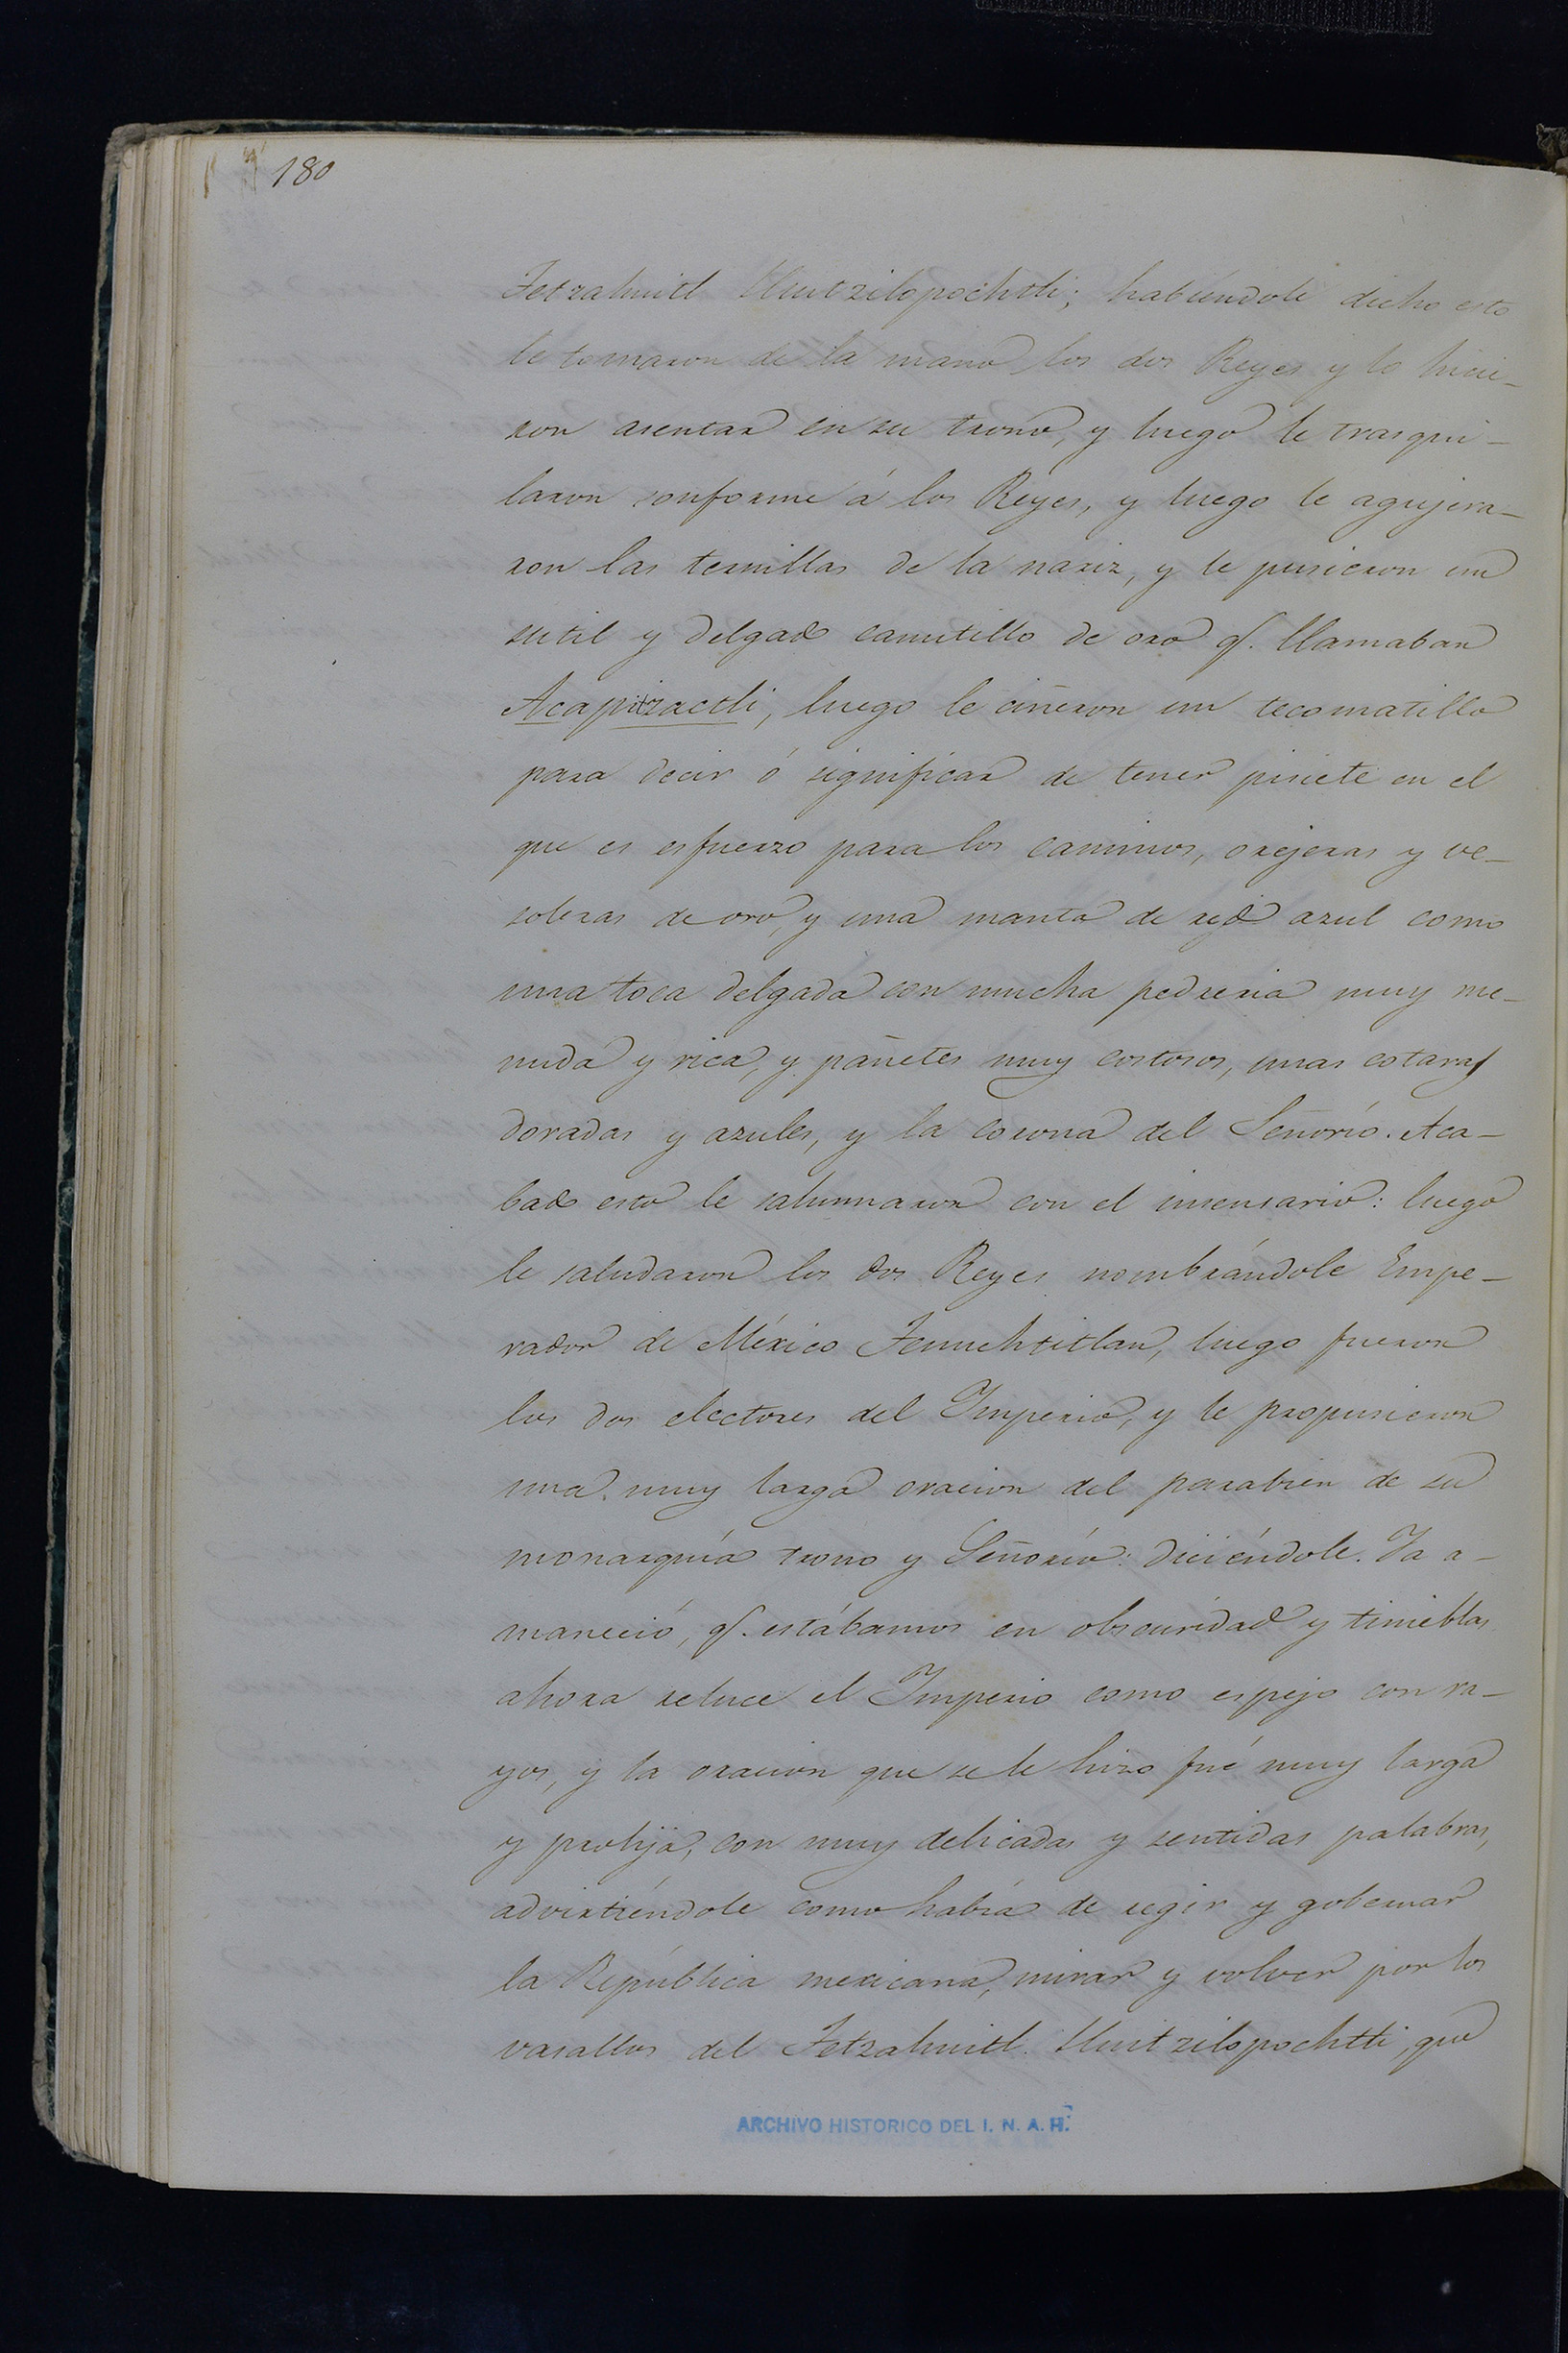 180
Tetzahuitl Huitzilopochtli; habiéndole dicho esto
le tomaron de la mano los dos Reyes y lo hicie-
ron asentar en su trono, y luego le trasqui-
laron conforme á los Reyes, y luego le agujera-
ron las ternillas de la nariz, y le pusieron un
sutil y delgado canutillo de oro q. llamaban
Acapitzactli, luego le ciñeron un tecomatillo
para decir ó significar de tener piciete en el
que es esfuerzo para los caminos, orejeras y ve-
soleras de oro, y una manta de red azul como
una toca delgada con mucha pedreria muy me-
nuda y rica, y pañetes muy costosos, unas cotaras
doradas y azules, y la corona del Señorío. Aca-
bado esto le sahumaron con el insensario: luego
le saludaron los dos Reyes nombrándole Empe-
rador de México Tenuchtitlan, luego fueron
los dos electores del Imperio, y le propusieron
una muy larga oracion del parabien de su
monarquía trono y Señorío: diciéndole. Ya a-
maneció, q. estábamos en obscuridad y tinieblas
ahora reluce el Imperio como espejo con ra-
yos, y la oracion que se le hizo fué muy larga
y prolija, con muy delicadas y sentidas palabras,
advirtiéndole como había de regir y gobernar
la República mexicana, mirar y volver por los
vasallos del Tetzahuitl Huitzilopochtli, que
ARCHIVO HISTORICO DEL I. N. A. H.